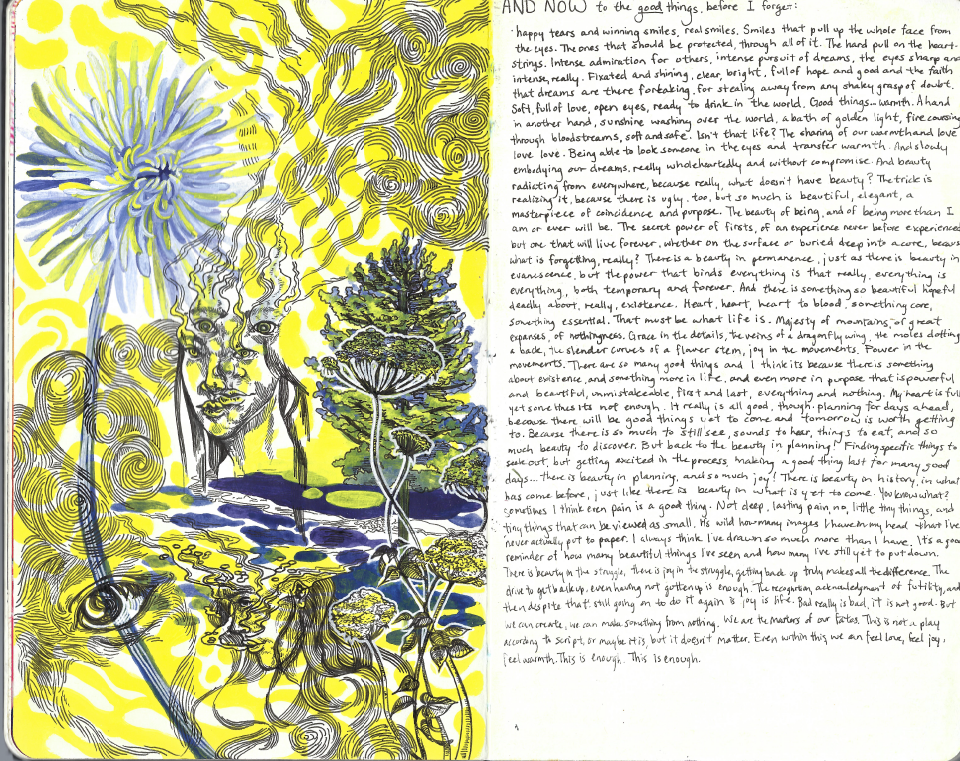 AND NOW to the good things, before I forget:
happy tears and winning smiles, real smiles. Smiles that pull up the whole face from
the eyes. The ones that should be protected, through all of it. The hard pull on the heart-
strings. Intense admiration for others, intense pursuit of dreams, the eyes sharp and
intense, really. Fixated and shining, clear, bright, full of hope and good and the faith
that dreams are there for taking, for stealing away from any shaky grasp of doubt.
Soft, full of love, open eyes, ready to drink in the world. Good things... warmth. A hand
in another hand, sunshine washing over the world, a bath of golden light, fire coursing
through bloodstreams, soft and safe. Isn't that life? The sharing of our warmth and love
love love. Being able to look someone in the eyes and transfer warmth. And slowly
embodying our dreams, really wholeheartedly and without compromise. And beauty
radiating from everywhere, because really, what doesn't have beauty? The trick is
realizing it, because there is ugly, too, but so much is beautiful, elegant, a
masterpiece of coincidence and purpose. The beauty of being, and of being more than I
am or ever will be. The secret power of firsts, of an experience never before experienced
but one that will live forever, whether on the surface or buried deep into a core, because
what is forgetting, really? There is a beauty in permanence, just as there is beauty in
evanescence, but the power that binds everything is that really, everything is
everything, both temporary and forever. And there is something so beautiful hopeful
deadly about, really, existence. Heart, heart, heart to blood, something core,
something essential. That must be what life is. Majesty of mountains, of great
expanses, of nothingness. Grace in the details, the veins of a dragonfly wing, the moles dotting
a back, the slender curves of a flower stem, joy in the movements. Power in the
movements. There are so many good things and I think its because there is something
about existence, and something more in life, and even more in purpose that is powerful
and beautiful, unmistakeable, first and last, everything and nothing. My heart is full
yet sometimes its not enough. It really is all good, though. planning for days ahead,
because there will be good things yet to come and tomorrow is worth getting
to. Because there is so much to still see, sounds to hear, things to eat, and so
much beauty to discover. But back to the beauty in planning! Finding specific things to
seek out, but getting excited in the process, making a good thing last for many good
days... there is beauty in planning, and so much joy! There is beauty in history, in what
has come before, just like there is beauty in what is yet to come. You know what?
Sometimes I think even pain is a good thing. Not deep, lasting pain, no, little tiny things, and
tiny things that can be viewed as small. Its wild how many images I have in my head that I've
never actually put to paper. I always think I've drawn so much more than I have. It's a good
reminder of how many beautiful things I've seen and how many I've still yet to put down.
There is beauty in the struggle, there is joy in the struggle, getting back up truly makes all the difference. The
drive to get back up, even having not gotten up is enough. The recognition, acknowledgment of futility, and
then despite that still going on to do it again is joy is life. Bad really is bad, it is not good. But
we can create, we can make something from nothing. We are the masters of our fates. This is not a play
according to script, or maybe it is, but it doesn't matter. Even within this we can feel love, feel joy,
feel warmth. This is enough. This is enough.